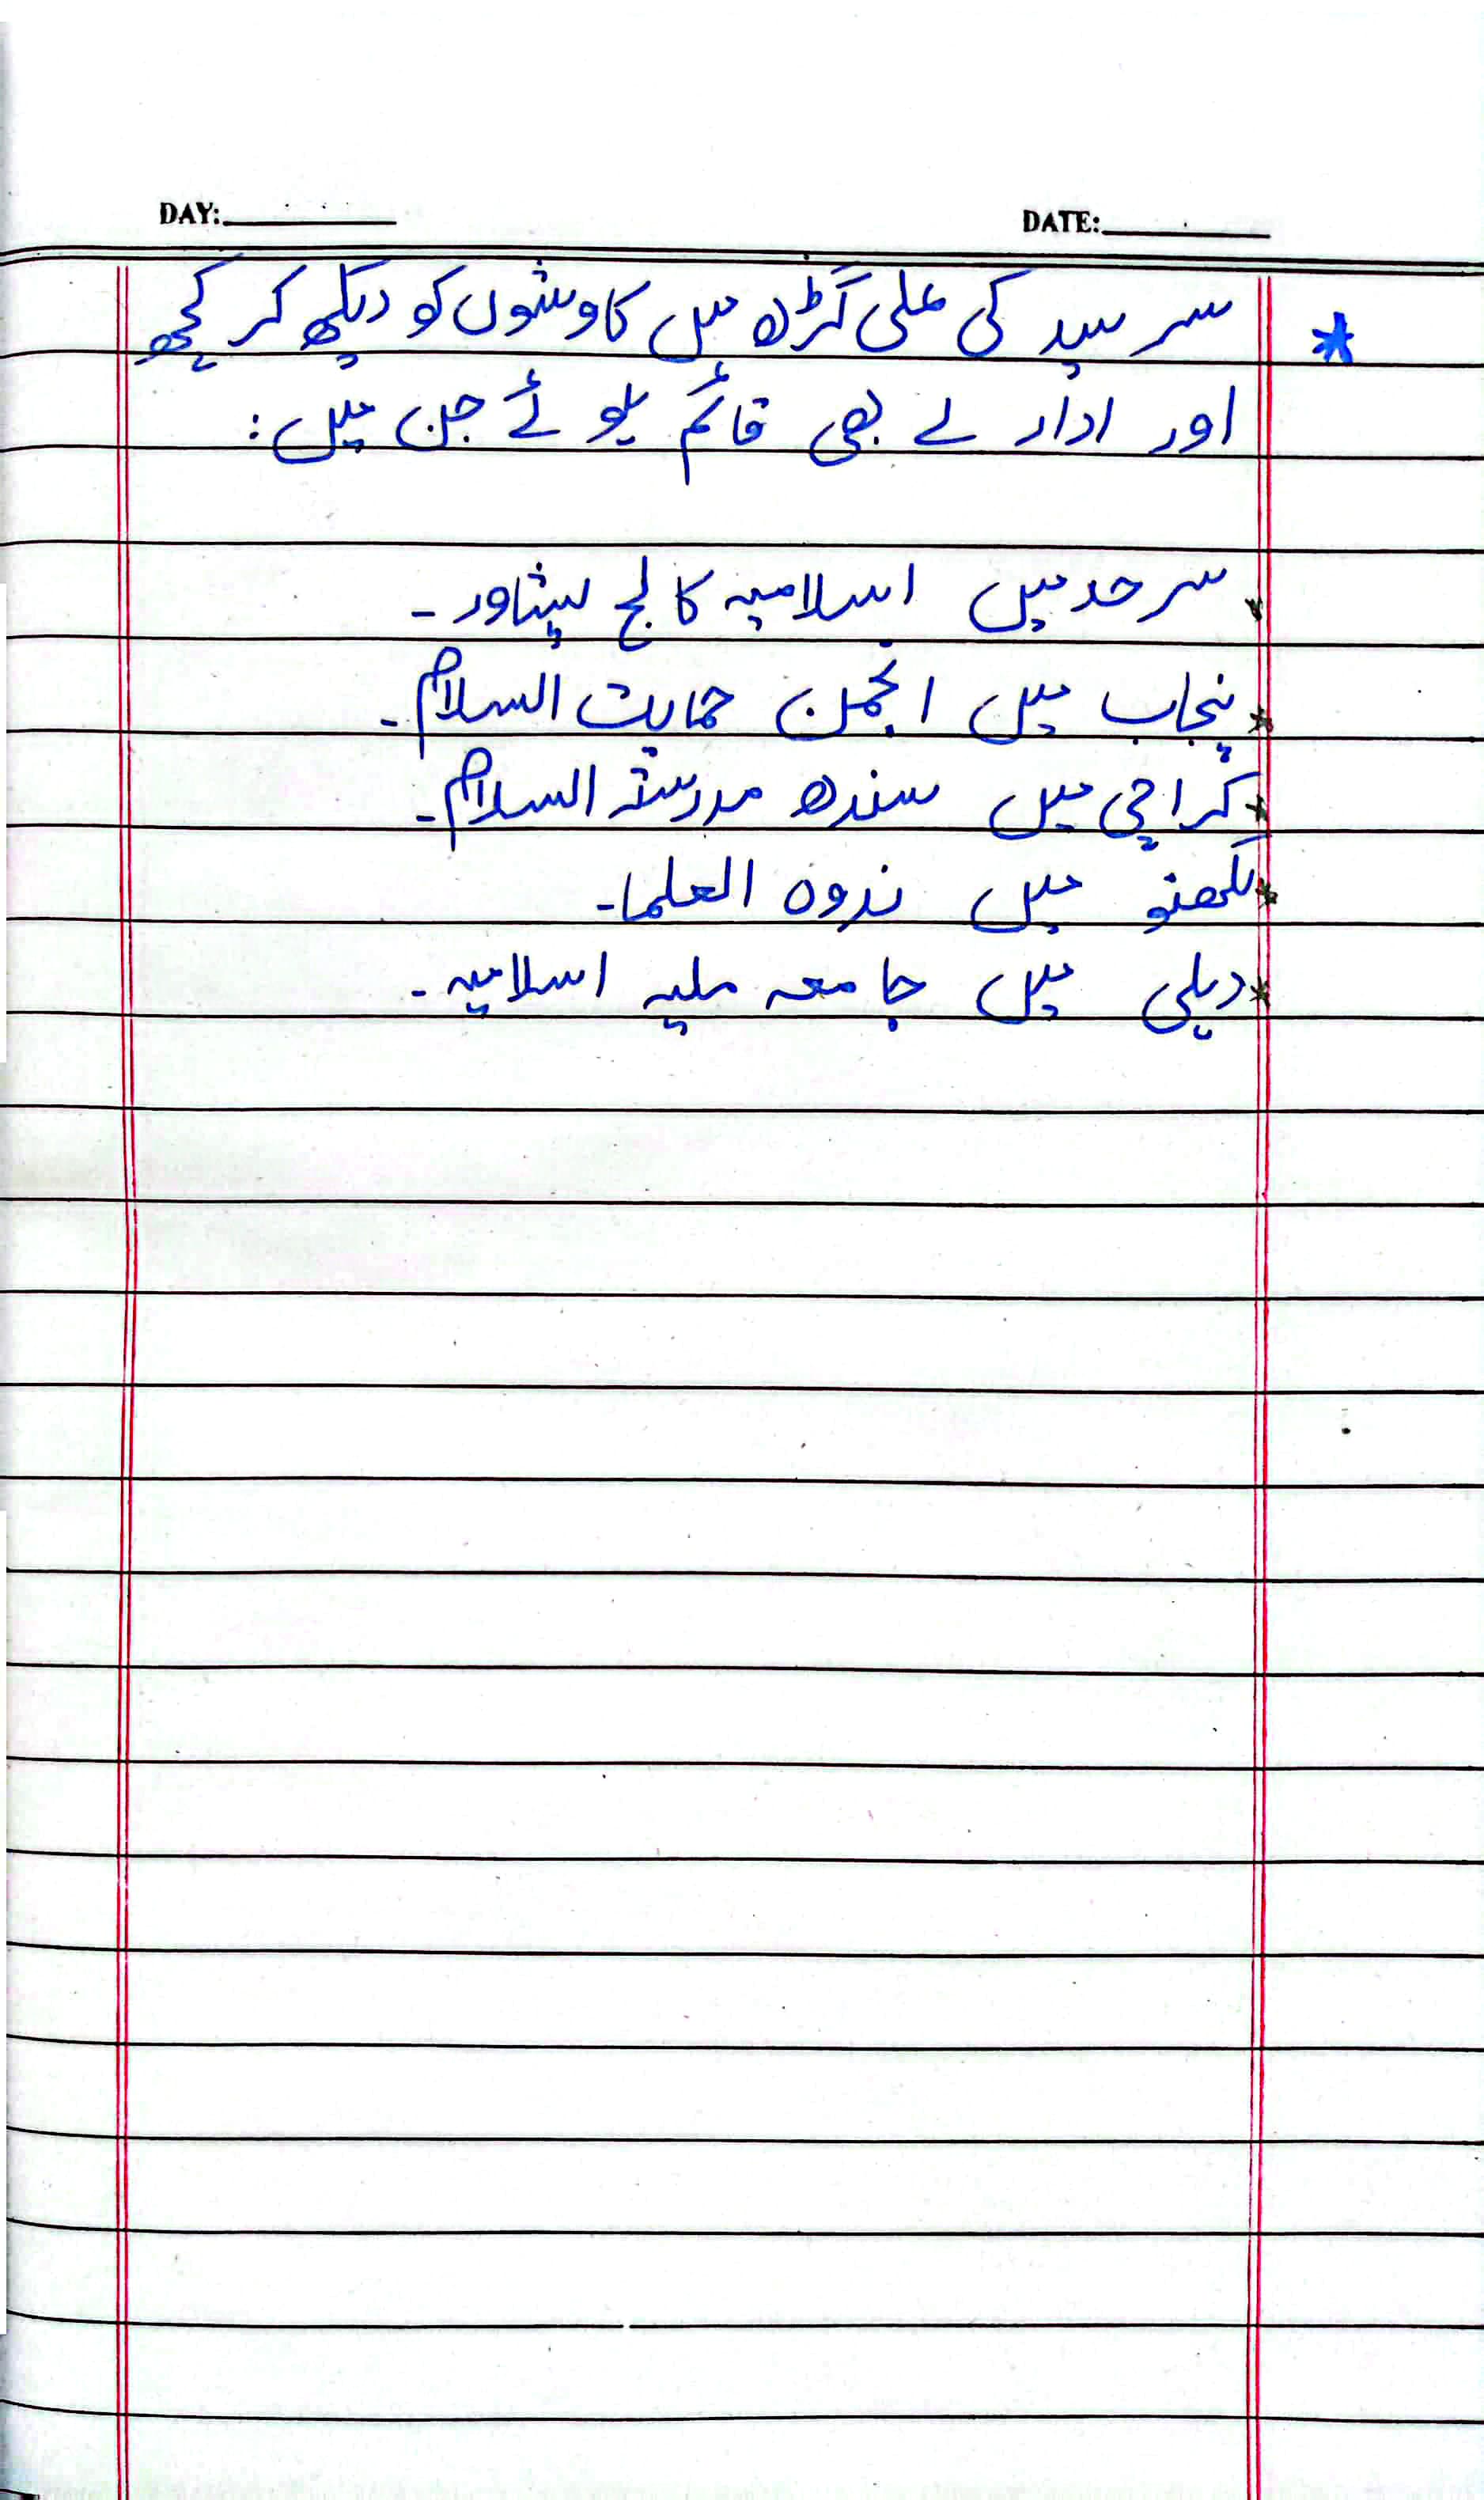 DAY: DATE:
* سر سید کی علی گڑھ میں کاوشوں کو دیکھ کر کچھ
اور ادارے بھی قائم ہوئے جن میں:
* سرحد میں اسلامیہ کالج پشاور۔
* پنجاب میں انجمن حمایت السلام۔
* کراچی میں سندھ مدرستہ السلام۔
* لکھنو میں ندوہ العلما۔
* دہلی میں جامعہ ملیہ اسلامیہ۔